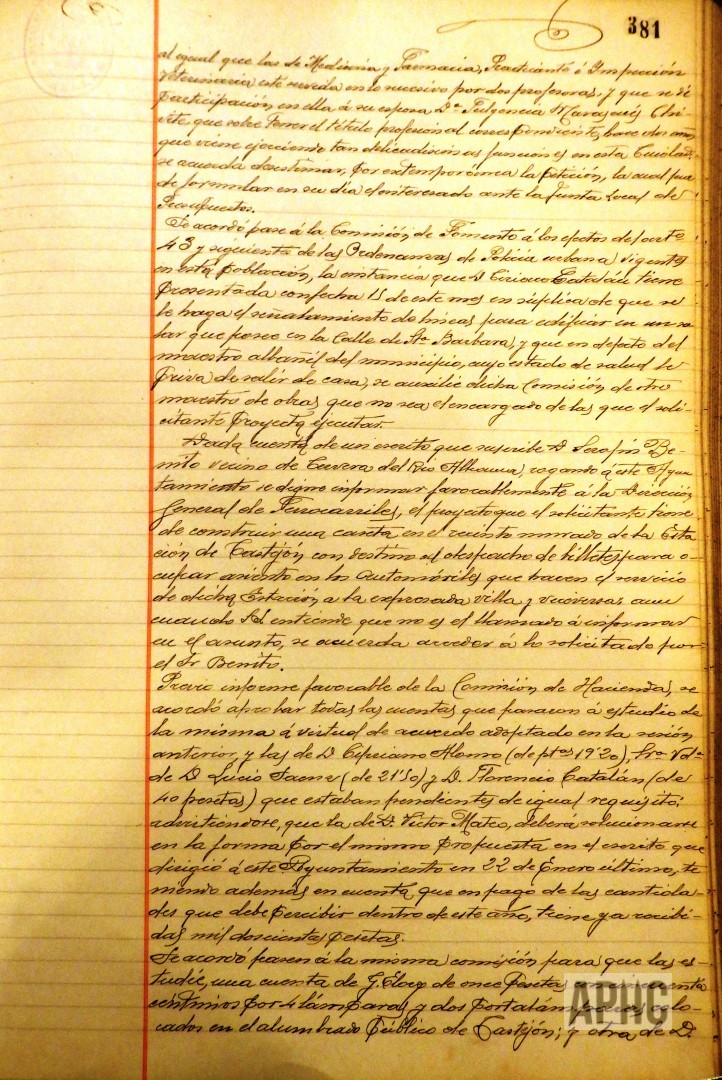 381
al igual que las de Medicina y Farmacia, Practicante é Inspección
Veterinaria esté servida en lo sucesivo por dos profesoras, y que se dé
participación en ella á su esposa Dª Fulgencia
vite, que sobre tener el título profesional correspondiente, hace dos años
que viene ejerciendo tan delicadísimas funciones en esta Ciudad,
se acuerda desestimar, por extemporánea la petición, la cual pue
de formular en su día el interesado ante la Junta Local de
Presupuestos.
Se acordó pase á la Comisión de Fomento á los efectos del artº
43 y siguientes de las Ordenanzas de Policía urbana vigentes
en esta población, la instancia que D. Ciriaco Catalán tiene
presentada con fecha 15 de este mes en súplica de que se
le haga el señalamiento de líneas para edificar en un so-
lar que posee en la Calle de Stª Barbara, y que en defecto del
maestro albañil del municipio, cuyo estado de salud le
priva de salir de casa, se auxilie dicha Comisión de otro
maestro de obras que no sea el encargado de las que el soli-
citante proyecta ejecutar.
Dada cuenta de un escrito que suscribe D. Serafín Be-
nito vecino de Cervera del Rio Alhama, rogando á este Ayun
tamiento se digne informar favorablemente á la Dirección
General de Ferrocarriles, el proyecto que el solicitante tiene
de construir una caseta en el recinto murado de la Esta
ción de Castejón con destino al despacho de billetes para o-
cupar asiento en los automóviles que hacen el servicio
de dicha Estación a la expresada villa y viceversa, aun
cuando S.E. entiende que no es el llamado á informar
en el asunto, se acuerda acceder á lo solicitado por
el Sr Benito.
Previo informe favorable de la Comisión de Hacienda, se
acordó aprobar todas las cuentas que pasaron á estudio de
la misma á virtud de acuerdo adoptado en la sesión
anterior y las de D. Cipriano Alonso (de ptas 19'20), Sra Vda
de D. Lucio Saenz (de 21'50) y D. Florencio Catalán (de
40 pesetas) que estaban pendientes de igual requisito;
advirtiéndose, que la de D. Victor Mateo, deberá solucionarse
en la forma por el mismo propuesta en el escrito que
dirigió á este Ayuntamiento en 22 de Enero último, te
niendo además en cuenta que en pago de las cantida-
des que debe percibir dentro de este año, tiene ya recibi-
das mil doscientas pesetas.
Se acordó pasen á la misma comisión para que las es-
tudie, una cuenta de G. Eloy de once pesetas cincuenta
centimos por 4 lámparas y dos portalámparas colo-
cados en el alumbrado público de Castejón; y otra de D.
APHC